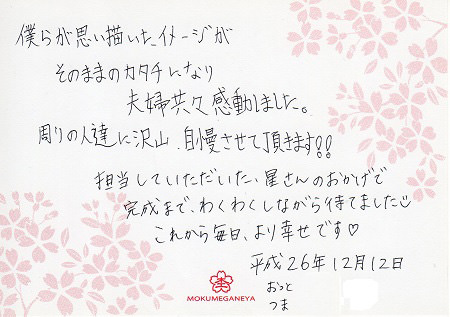 僕らが思い描いたイメージが
そのままのカタチになり
夫婦共々感動しました。
周りの人達に沢山自慢させて頂きます!!
担当していただいた、星さんのおかげで
完成まで、わくわくしながら待てました☺
これから毎日、より幸せです♡
平成26年12月12日
おっと
つま
MOKUMEGANEYA